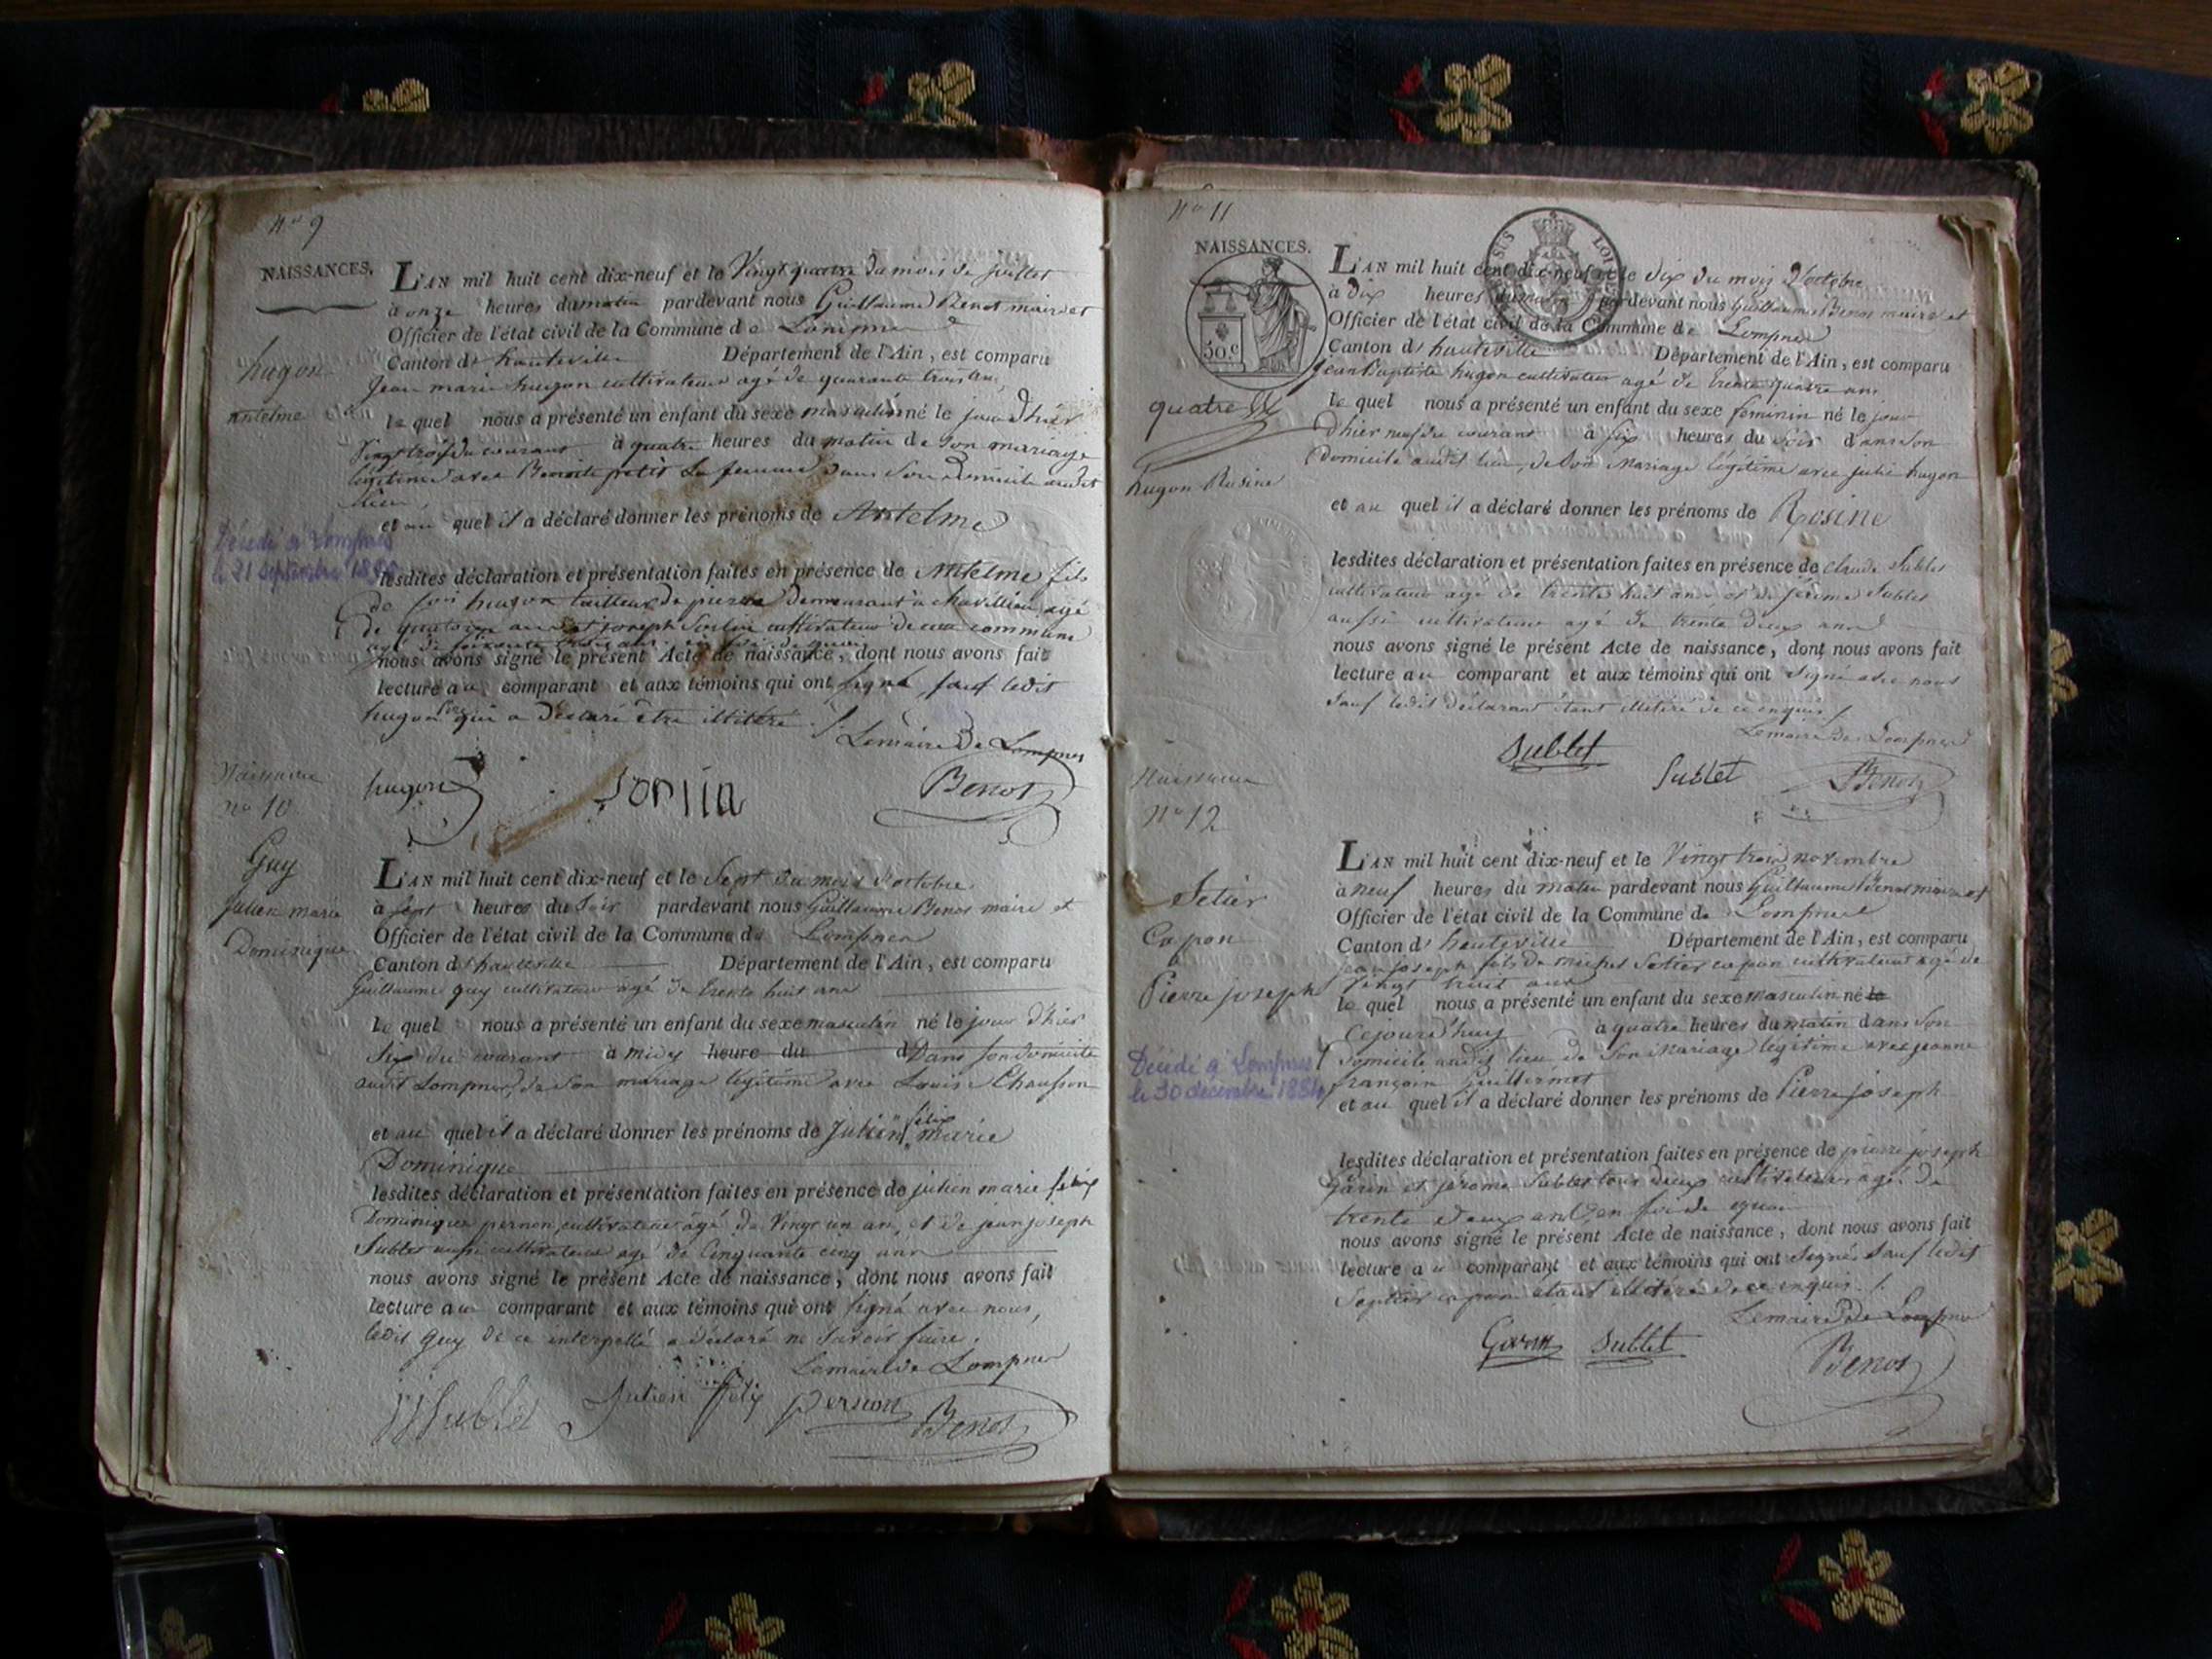 N° 9
NAISSANCES.
hugon
antelme
Décédé à Lompnes
le 21 septembre
L'AN mil huit cent dix-neuf et le Vingt quatre du mois de juillet
à onze heures du matin pardevant nous Guillaume Benot maire et
Officier de l'état civil de la Commune de Lompnes
Canton d' hauteville Département de l'Ain, est comparu
Jean marie hugon cultivateur agé de quarante trois ans
le quel nous a présenté un enfant du sexe masculin né le jour d'hier
Vingt trois du courant à quatre heures du matin de son mariage
légitime avec Benoite petit sa femme, dans son domicile audit
lieu,
et au quel il a déclaré donner les prénoms de Antelme
lesdites déclaration et présentation faites en présence de Antelme fils
de hugon tailleur de pierre demeurant à agé
de et joseph cultivateur de cette commune
agé de soixante trois ans
nous avons signé le présent Acte de naissance, dont nous avons fait
lecture au comparant et aux témoins qui ont signé, sauf ledit
hugon père qui a déclaré être illitéré ./.
Lemaire De Lompnes
hugon Benot
Naissance
n° 10
Guy
julien marie
Dominique
L'AN mil huit cent dix-neuf et le Sept du mois d'octobre
à sept heures du soir pardevant nous Guillaume Benot maire et
Officier de l'état civil de la Commune de Lompnes
Canton d' hauteville Département de l'Ain, est comparu
Guillaume guy cultivateur agé de trente huit ans
le quel nous a présenté un enfant du sexe masculin né le jour d'hier
Six du courant à midy heure du d Dans son domicile
audit Lompnes, de son mariage légitime avec Louise Chausson
et au quel il a déclaré donner les prénoms de Julien félix marie
Dominique
lesdites déclaration et présentation faites en présence de julien marie félix
Dominique pernon, cultivateur agé de Vingt un an, et de jean joseph
Sublet aussi cultivateur agé de Cinquante cinq ans
nous avons signé le présent Acte de naissance, dont nous avons fait
lecture au comparant et aux témoins qui ont signé avec nous,
ledit guy de ce interpellé a déclaré ne savoir faire.
Lemaire de Lompnes
JJ Sublet Julien félix pernon Benot
N° 11
NAISSANCES.
50.c
quatre
hugon Rosine
L'AN mil huit cent dix-neuf et le dix du mois d'octobre
à dix heures du matin pardevant nous Guillaume Benot maire et
Officier de l'état civil de la Commune de Lompnes
Canton d' hauteville Département de l'Ain, est comparu
jean Baptiste hugon cultivateur agé de trente quatre ans
le quel nous a présenté un enfant du sexe feminin né le jour
d'hier neuf du courant à six heures du soir dans son
Domicile audit lieu, de son Mariage légitime avec julie hugon
et au quel il a déclaré donner les prénoms de Rosine
lesdites déclaration et présentation faites en présence de claude Sublet
cultivateur agé de trente huit ans et de jérome Sublet
aussi cultivateur agé de trente deux ans
nous avons signé le présent Acte de naissance, dont nous avons fait
lecture au comparant et aux témoins qui ont signé avec nous
sauf ledit déclarant étant illitéré de ce enquis ./.
Lemaire De Lompnes
Sublet Sublet Benot
Naissance
N° 12
Setier
Capon
Pierre joseph
Décédé à Lompnes
le 30 decembre 1884
L'AN mil huit cent dix-neuf et le Vingt trois novembre
à neuf heures du matin pardevant nous Guillaume Benot maire et
Officier de l'état civil de la Commune de Lompnes
Canton d' hauteville Département de l'Ain, est comparu
jean joseph fils de michel Setier capon cultivateur agé de
Vingt huit ans
le quel nous a présenté un enfant du sexe masculin né le
Cejourd'huy à quatre heures du matin dans son
Domicile audit lieu de son Mariage légitime avec jeanne
françoise Guillermet
et au quel il a déclaré donner les prénoms de Pierre joseph
lesdites déclaration et présentation faites en présence de pierre joseph
Garin et jérome Sublet tous deux cultivateurs agé de
trente deux ans, en foi de quoi
nous avons signé le présent Acte de naissance, dont nous avons fait
lecture au comparant et aux témoins qui ont signé, sauf ledit
capon étant illitéré de ce enquis ./.
Lemaire De Lompnes
Garin Sublet Benot